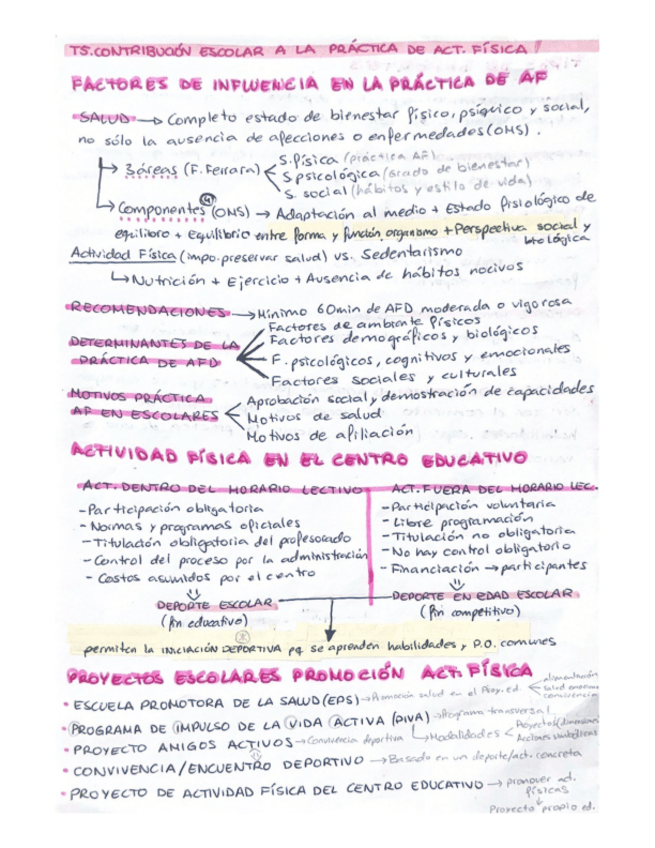 T5. CONTRIBUCIÓN ESCOLAR A LA PRÁCTICA DE ACT. FÍSICA
FACTORES DE INFLUENCIA EN LA PRÁCTICA DE AF
SALUD → Completo estado de bienestar físico, psíquico y social,
no sólo la ausencia de afecciones o enfermedades (OMS).
3 áreas (F. Ferrara)
S. física (práctica AF)
S. psicológica (grado de bienestar)
S. social (hábitos y estilo de vida)
Componentes (4) (OMS) → Adaptación al medio + Estado fisiológico de
equilibro + Equilibrio entre forma y función organismo + Perspectiva social y
biológica
Actividad Física (impo. preservar salud) vs. Sedentarismo
Nutrición + Ejercicio + Ausencia de hábitos nocivos
RECOMENDACIONES → Mínimo 60min de AFD moderada o vigorosa
DETERMINANTES DE LA
PRÁCTICA DE AFD
Factores de ambiente físicos
Factores demográficos y biológicos
F. psicológicos, cognitivos y emocionales
Factores sociales y culturales
MOTIVOS PRÁCTICA
AF EN ESCOLARES
Aprobación social y demostración de capacidades
Motivos de salud
Motivos de afiliación
ACTIVIDAD FÍSICA EN EL CENTRO EDUCATIVO
ACT. DENTRO DEL HORARIO LECTIVO
- Participación obligatoria
- Normas y programas oficiales
- Titulación obligatoria del profesorado
- Control del proceso por la administración
- Costos asumidos por el centro
DEPORTE ESCOLAR
(fin educativo)
ACT. FUERA DEL HORARIO LEC.
- Participación voluntaria
- Libre programación
- Titulación no obligatoria
- No hay control obligatorio
- Financiación → participantes
DEPORTE EN EDAD ESCOLAR
(fin competitivo)
permiten la INICIACIÓN DEPORTIVA pq se aprenden habilidades y P.O. comunes
PROYECTOS ESCOLARES PROMOCIÓN ACT. FÍSICA
• ESCUELA PROMOTORA DE LA SALUD (EPS) → Promoción salud en el Proy. ed.
alimentación
salud
convivencia
• PROGRAMA DE IMPULSO DE LA VIDA ACTIVA (PIVA) → Programa transversal
Modalidades
Proyectos
Acciones
• PROYECTO AMIGOS ACTIVOS → Convivencia deportiva
• CONVIVENCIA / ENCUENTRO DEPORTIVO → Basado en un deporte/act. concreta
• PROYECTO DE ACTIVIDAD FÍSICA DEL CENTRO EDUCATIVO → promover act.
físicas
Proyecto propio ed.